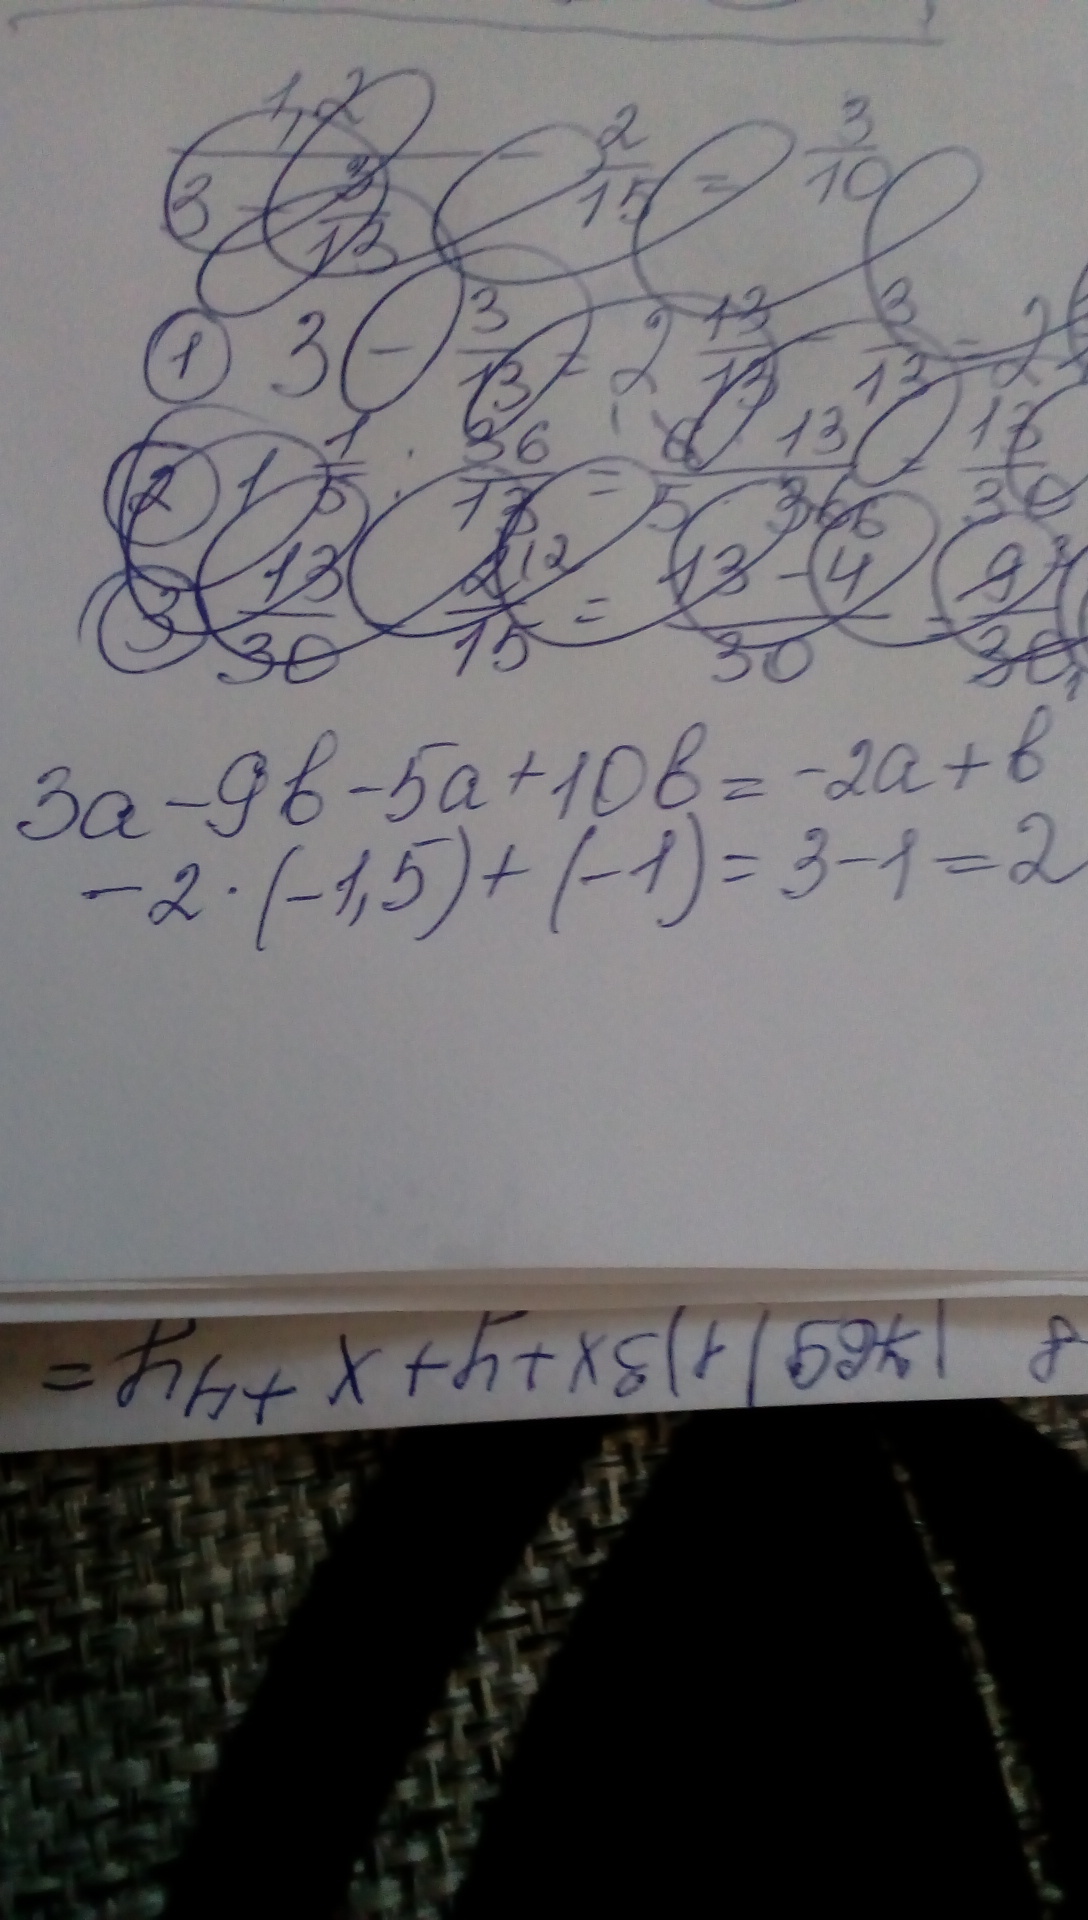 1,2 / (3 - 3/13) - 2/15 = 3/10
① 3 - 3/13 = 2 13/13 - 3/13 = 2
② 1 1/5 : 36/13 = 6 · 13 / 5 · 36 6 = 13/30
③ 13/30 - 2/15 = 13 - 4 / 30 = 9/30
3a - 9b - 5a + 10b = -2a + b
-2 · (-1,5) + (-1) = 3 - 1 = 2